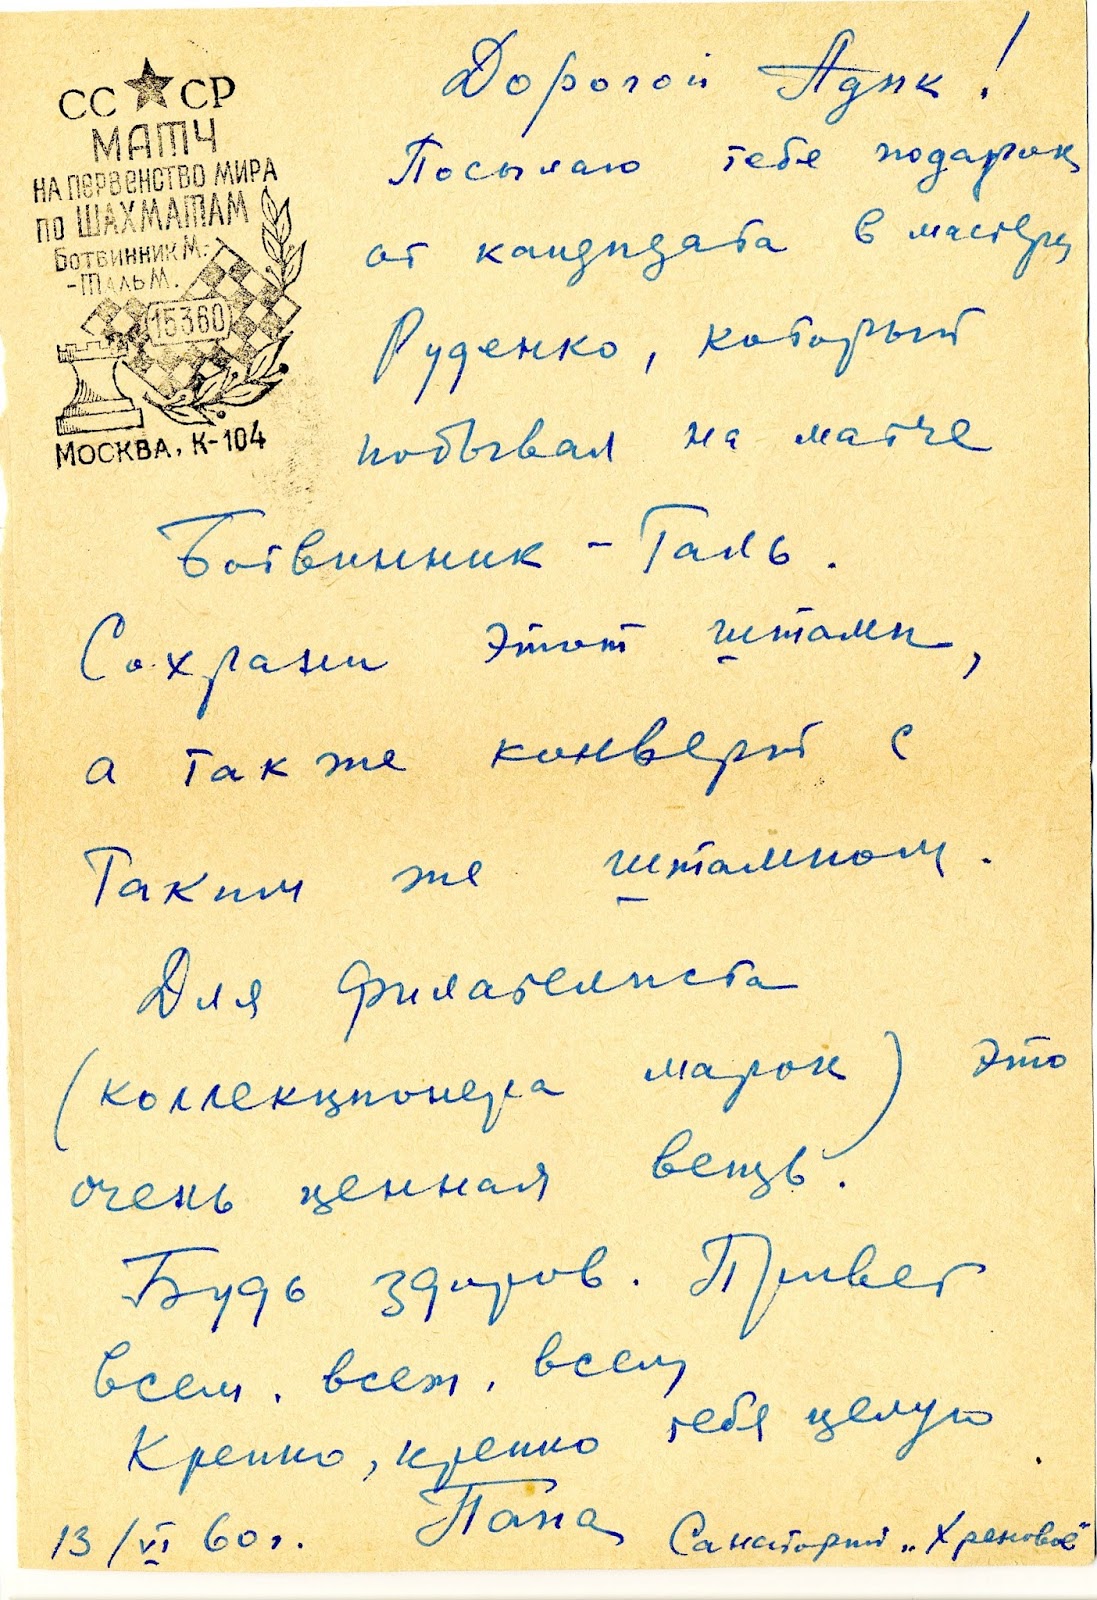 СС СР
МАТЧ
НА ПЕРВЕНСТВО МИРА
ПО ШАХМАТАМ
БОТВИННИК М.-
-ТАЛЬ М.
15360
МОСКВА, К-104
Дорогой Адик!
Посылаю тебе подарок
от кандидата в мастера
Руденко, который
побывал на матче
Ботвинник - Таль.
Сохрани этот штамп,
а также конверт с
Таким же штампом.
Для филателиста
(коллекционера марок) это
очень ценная вещь.
Будь здоров. Привет
всем, всем, всем
Крепко, крепко тебя целую.
Папа
13/VI 60г.
Санаторий „Хреновое"